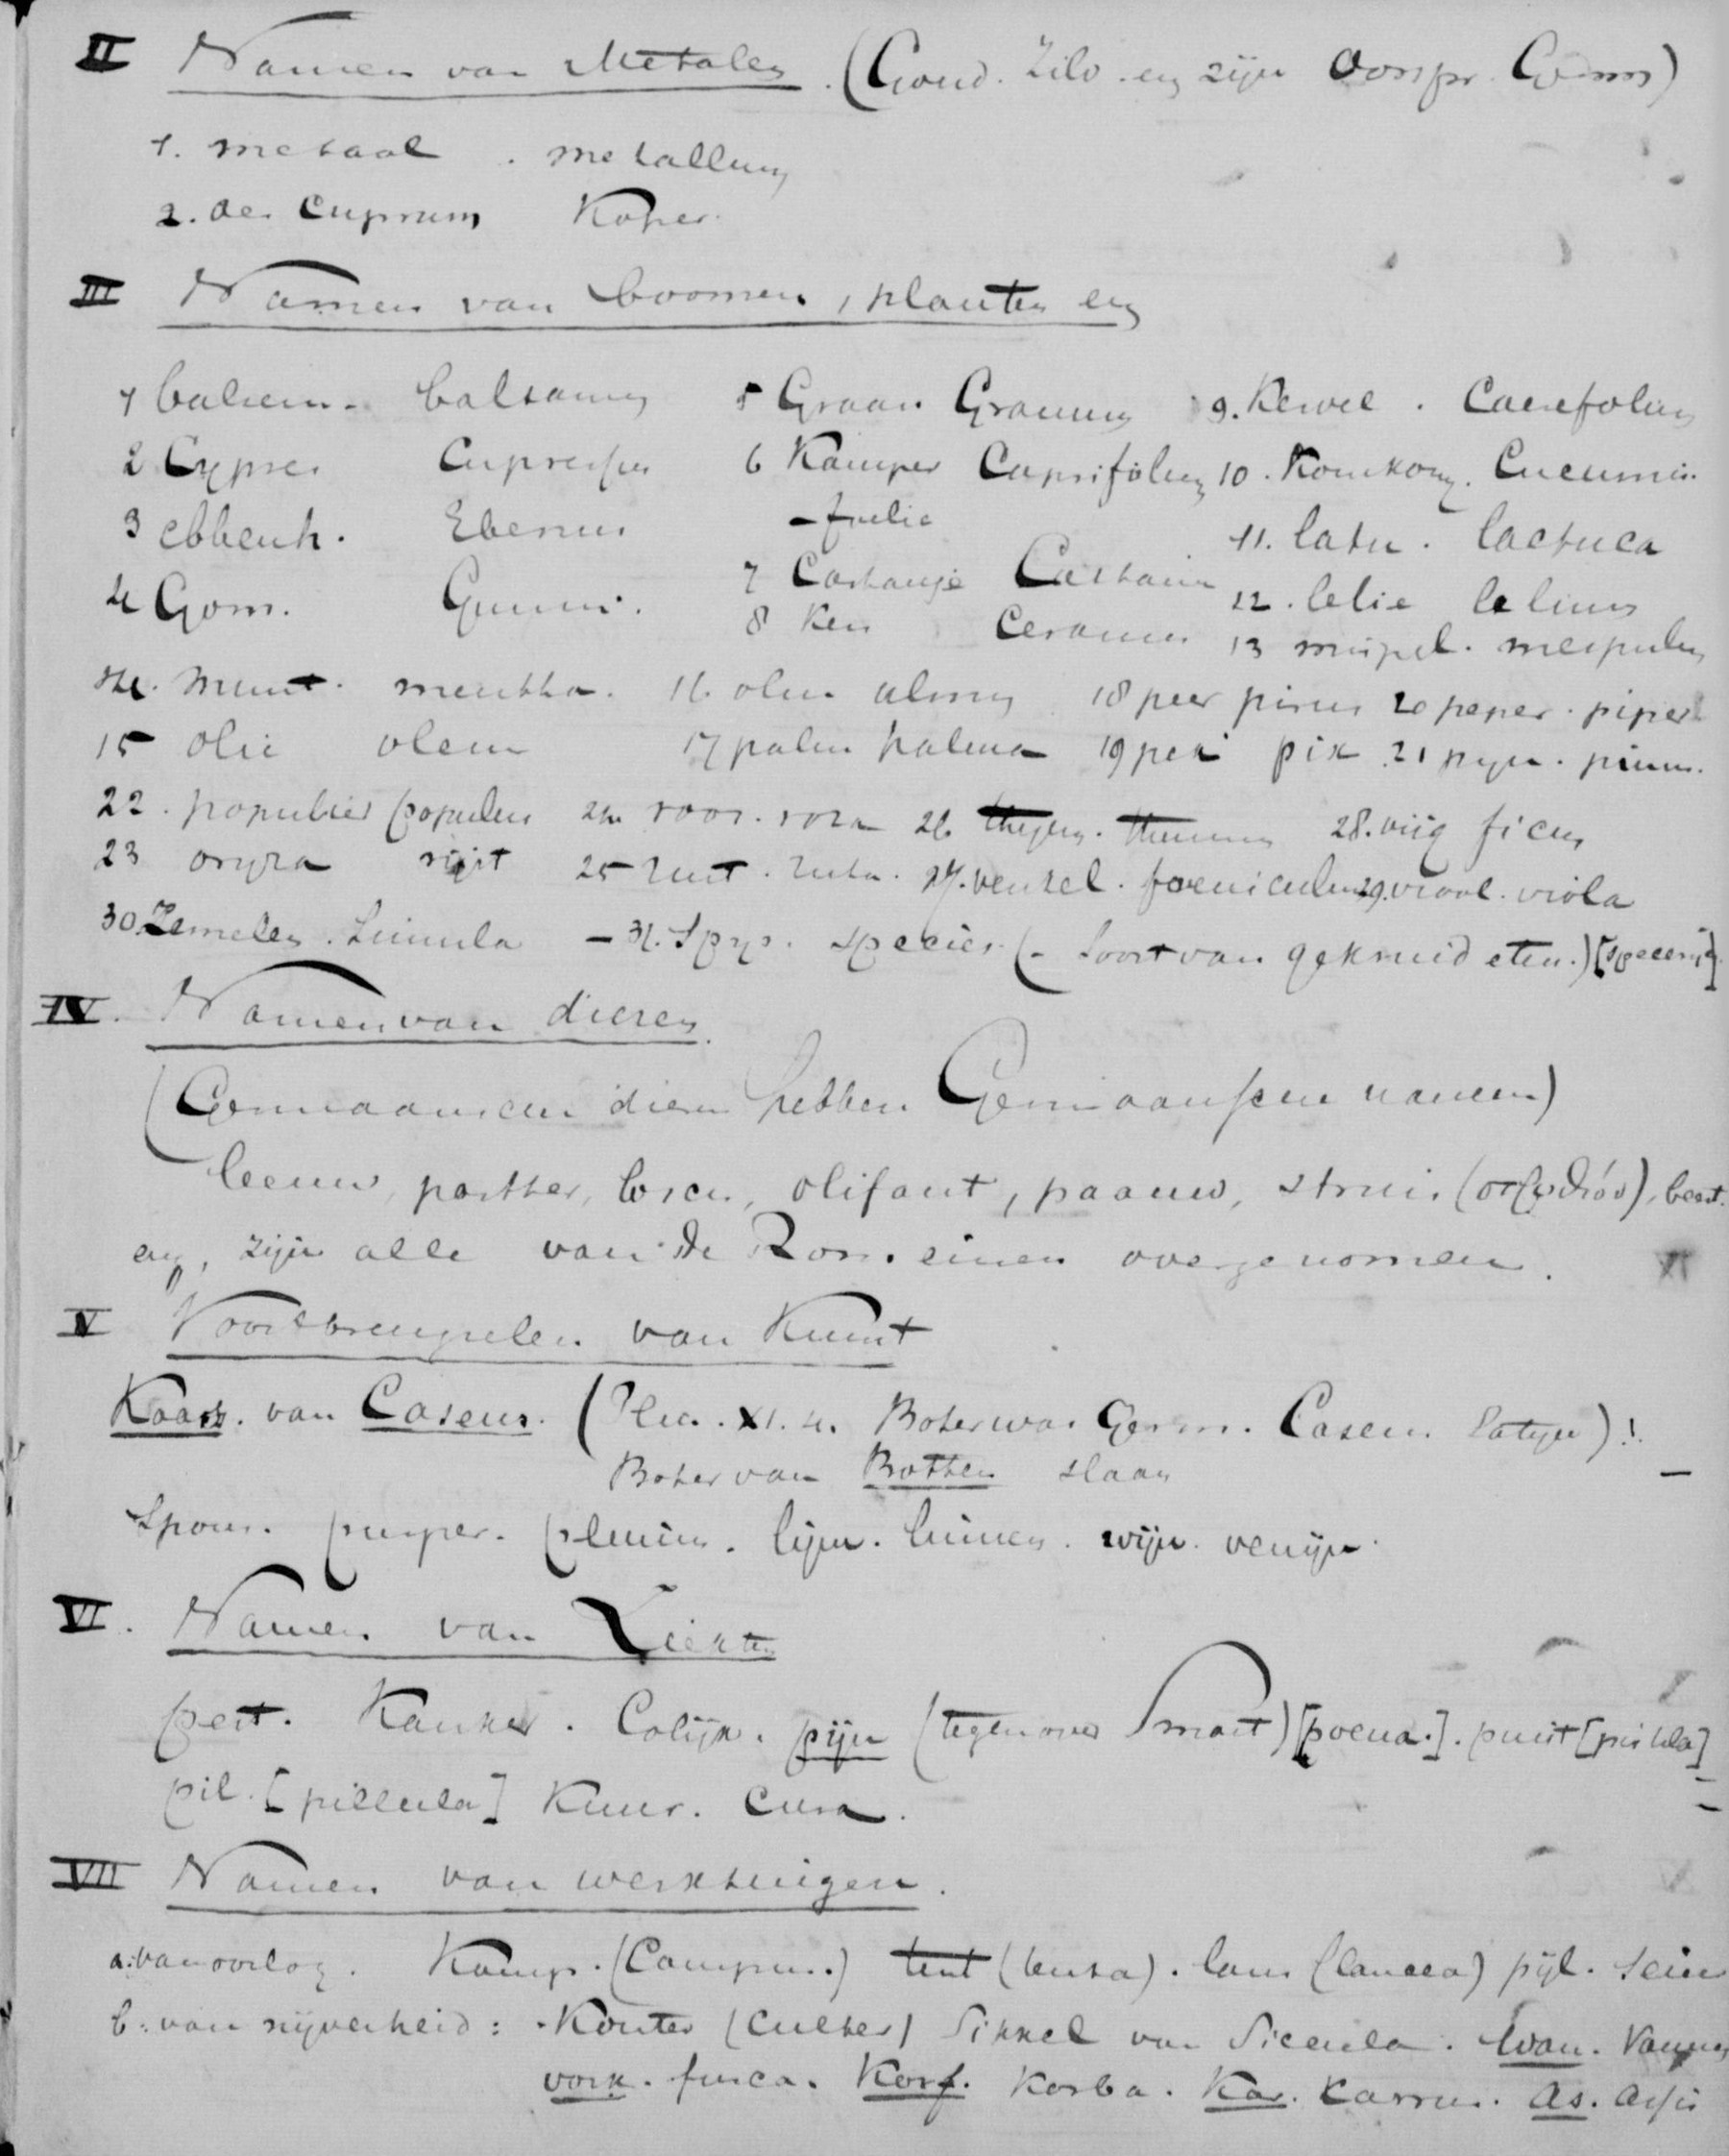 II Namen van Metalen. (Goud. Zilv. en zijn Oorspr. Germ)
1. metaal . metallum
2. aes Cuprum Koper.
III Namen van boomen, planten en
1 balsem. balsamum 5 Graan Granum 9. Kervel. Caerefolium
2 Cypres Cupressus 6 Kamper Caprifolium 10. Komkom. Cucumis.
3 ebbenh. Ebenus - foelie 11. latu. lactuca
4 Gom. Gummi. 7 Castanje Castania 12. lelie lelium
8 Kers Cerasus 13 mispel. mespulum
14. Munt. mentha. 16 olm ulmus 18 peer pirus 20 peper. piper
15 olie oleum 17 palm palma 19 pek pix 21 pijn. pinus.
22. populier populus 24 roos. rosa 26 thijm. thimum 28. vijg ficus
23 oryza rijst 25 ruit. ruta. 27. venkel. foeniculum 29. viool. viola
30. Zemelen. Simula - 31. Spijs. species (- Soort van gekruid eten.) [specerij]
IV. Namen van dieren.
(Germaansche dieren hebben Germaansche namen)
leeuw, panther, losch, olifant, paauw, struis beest.
enz, zijn alle van de Romeinen overgenomen.
V Voortbrengselen van Kunst
Kaas. van Caseus. (Plin. XI. 4. Boter was Germ. Caseus Latijn)!
Boter van Botten slaan
Spons. purper. pluim. lijm. linnen. wijn. venijn.
VI. Namen van Ziekten
pest. Kanker. Colijk. pijn (tegenover Smart) [poena.]. puist [pustula]
pil. [pillula] Kuur. Cura.
VII Namen van werktuigen.
a: van oorlog. Kamp. (Campus.) tent (tenta). lans (lancea) pijl. Sein
b: van nijverheid: Kouter (Culter) Sikkel van Sicula. Wan. Vannus
vork. furca. Korf. Korba. Kar. Carrus. As. Assis